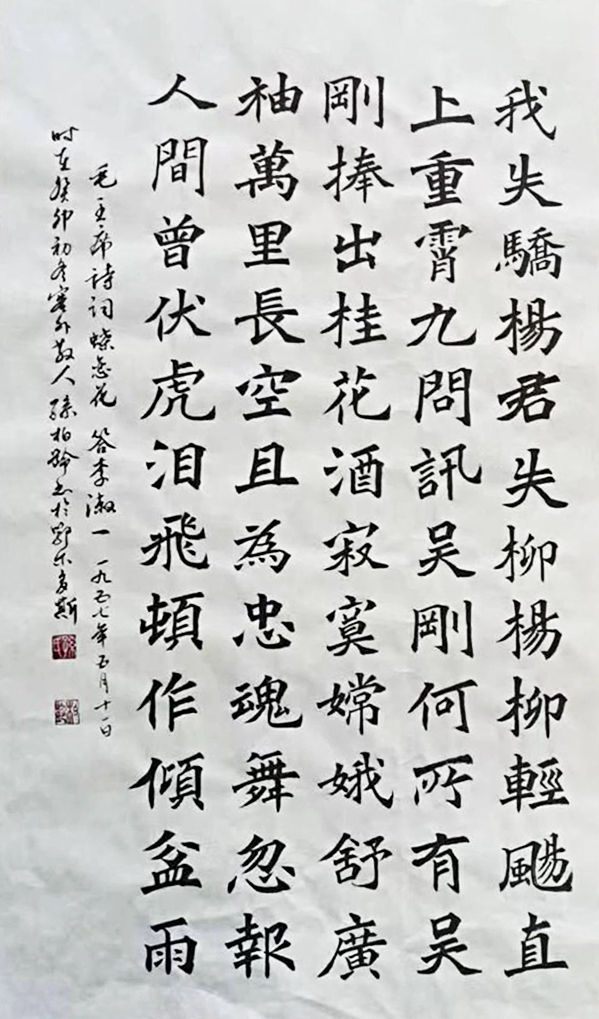 我失驕楊君失柳楊柳輕颺直
上重霄九問訊吳剛何所有吳
剛捧出桂花酒寂寞嫦娥舒廣
袖萬里長空且為忠魂舞忽報
人間曾伏虎泪飛頓作傾盆雨
毛主席詩詞蝶恋花 答李淑一 一九五七年五月十一日
时在癸卯初冬塞外散人孫柏龄书於鄂尔多斯